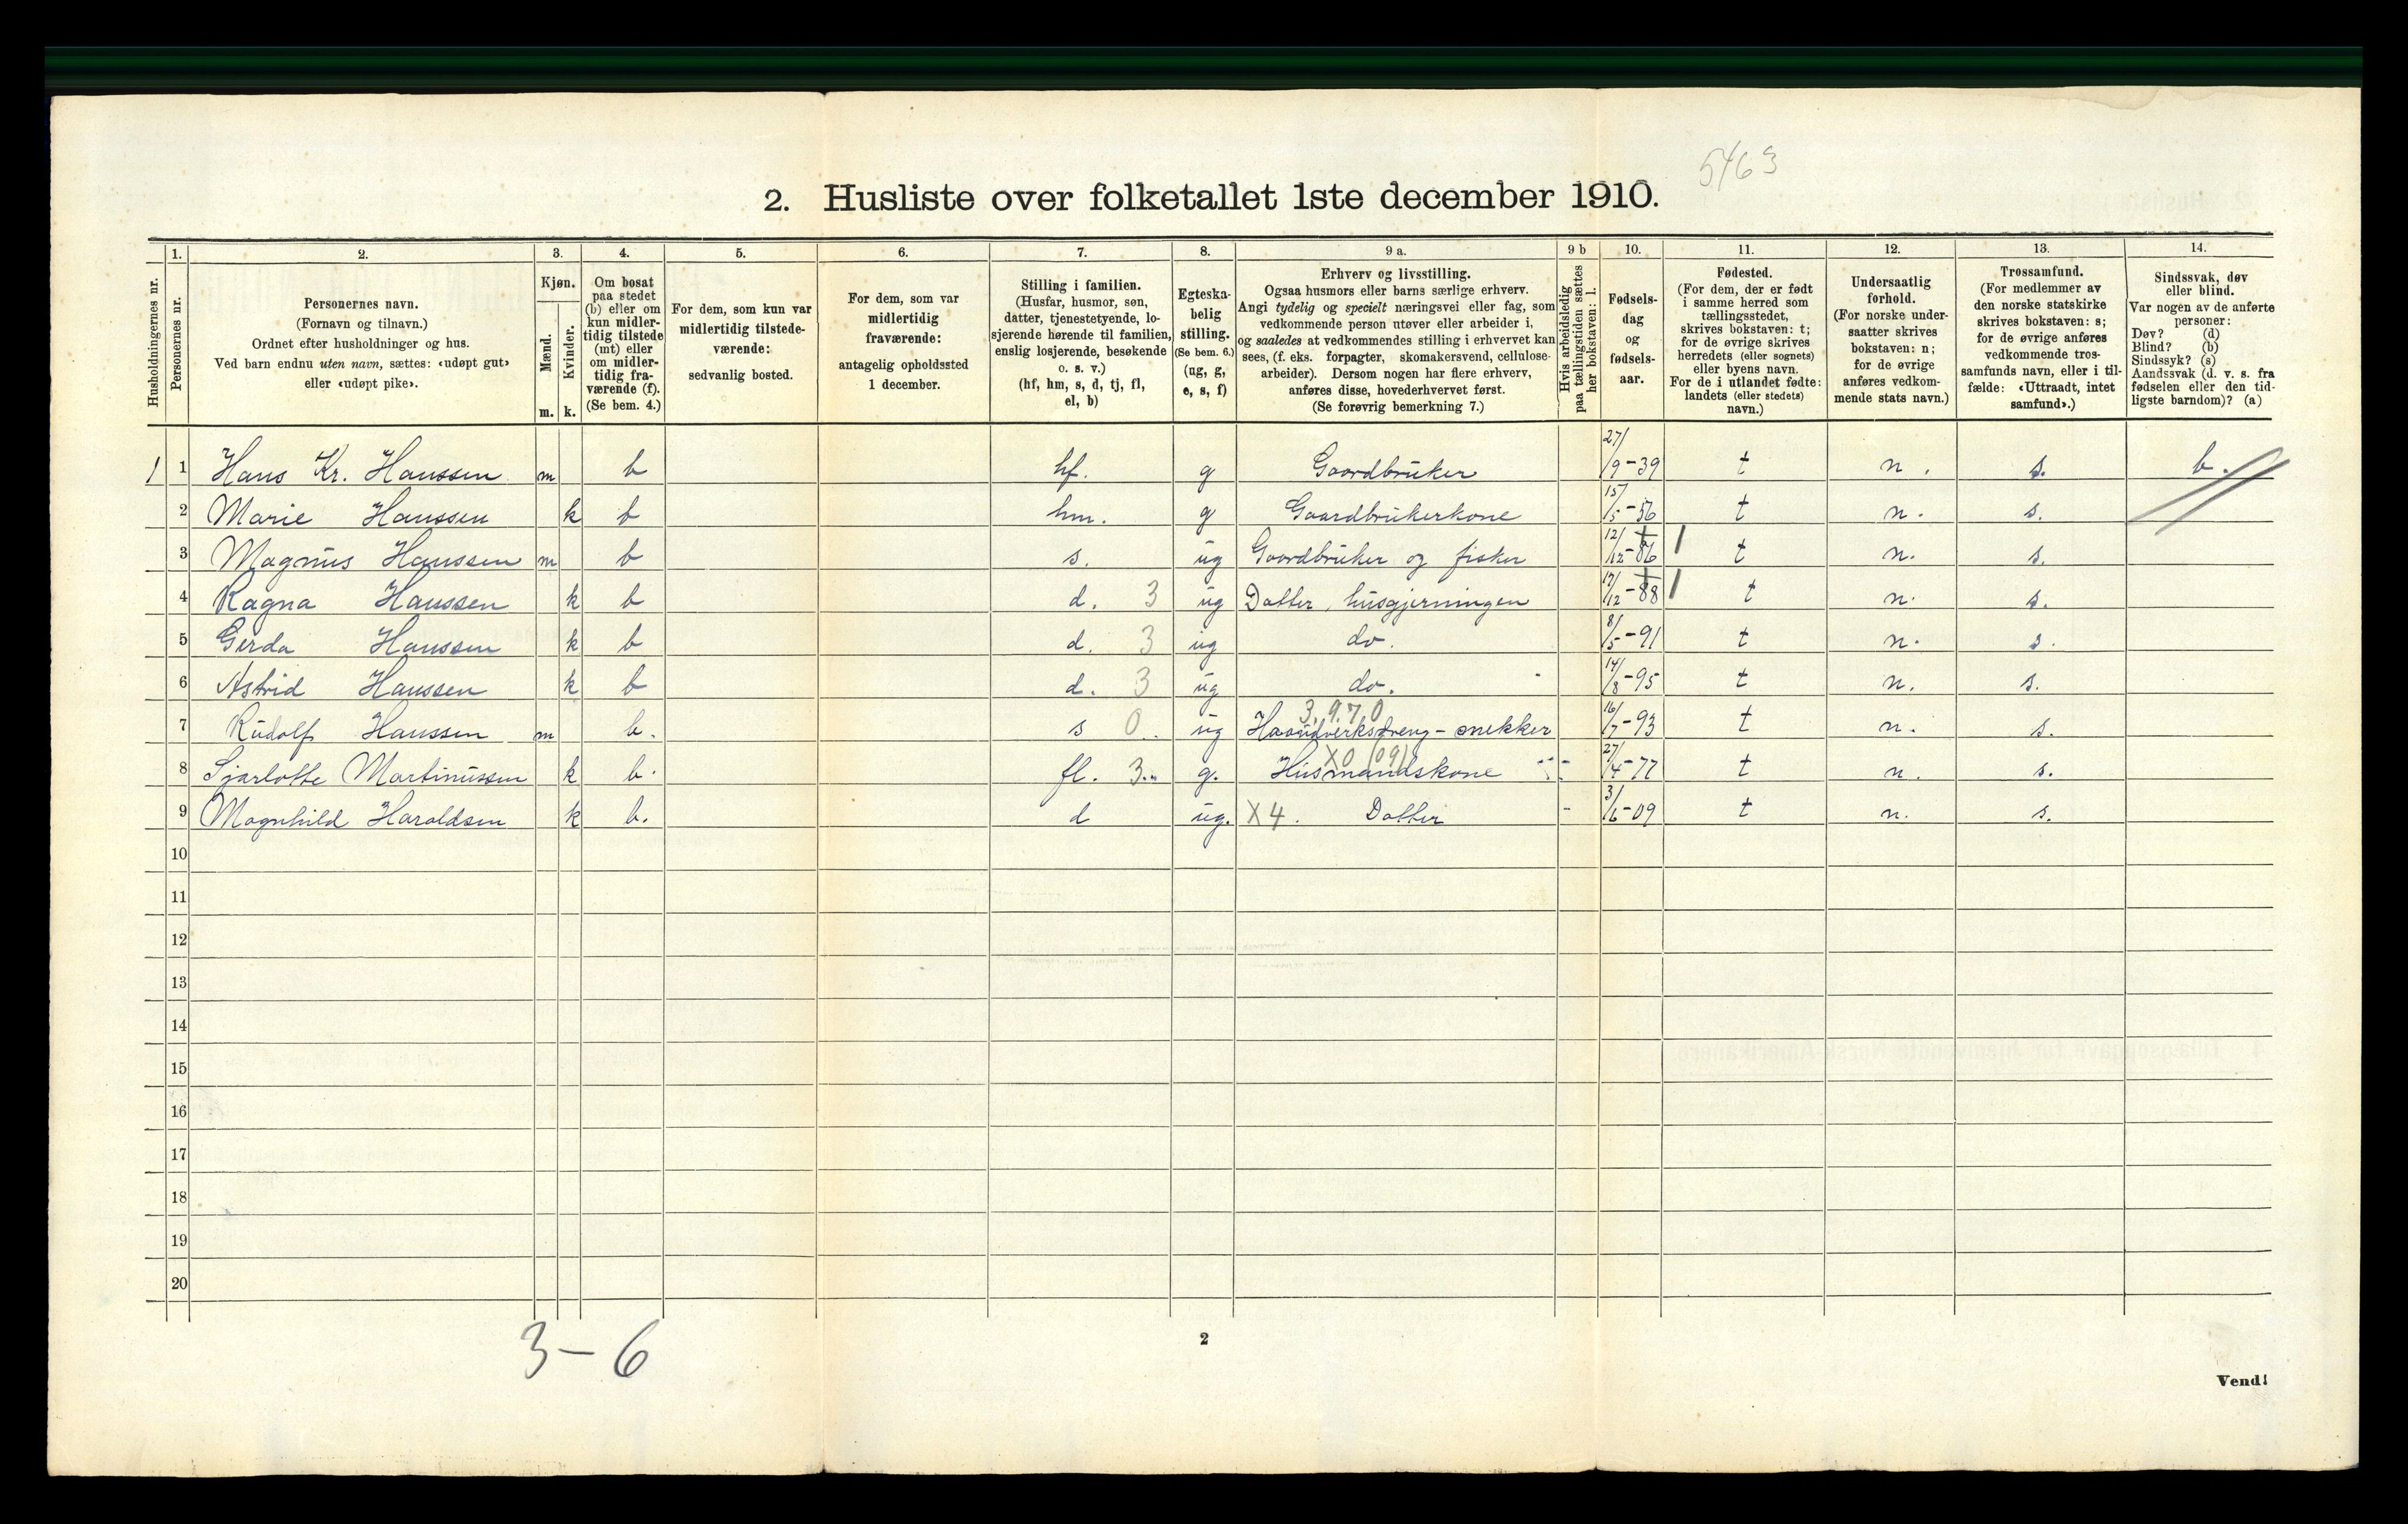 5463
2. Husliste over folketallet 1ste december 1910.
Husholdningernes nr.
1.
Personernes nr.
2.
Personernes navn.
(Fornavn og tilnavn.)
Ordnet efter husholdninger og hus.
Ved barn endnu uten navn, sættes: «udøpt gut»
eller «udøpt pike».
3.
Kjøn.
Mænd.
m.
Kvinder.
k.
4.
Om bosat
paa stedet
(b) eller om
kun midler-
tidig tilstede
(mt) eller
om midler-
tidig fra-
værende (f).
(Se bem. 4.)
5.
For dem, som kun var
midlertidig tilstede-
værende:
sedvanlig bosted.
6.
For dem, som var
midlertidig
fraværende:
antagelig opholdssted
1 december.
7.
Stilling i familien.
(Husfar, husmor, søn,
datter, tjenestetyende, lo-
sjerende hørende til familien,
enslig losjerende, besøkende
o. s. v.)
(hf, hm, s, d, tj, fl,
el, b)
8.
Egteska-
belig
stilling.
(Se bem. 6.)
(ug, g,
e, s, f)
9 a.
Erhverv og livsstilling.
Ogsaa husmors eller barns særlige erhverv.
Angi tydelig og specielt næringsvei eller fag, som
vedkommende person utøver eller arbeider i,
og saaledes at vedkommendes stilling i erhvervet kan
sees, (f. eks. forpagter, skomakersvend, cellulose-
arbeider). Dersom nogen har flere erhverv,
anføres disse, hovederhvervet først.
(Se forøvrig bemerkning 7.)
9 b
Hvis arbeidsledig
paa tællingstiden sættes
her bokstaven: l.
10.
Fødsels-
dag
og
fødsels-
aar.
11.
Fødested.
(For dem, der er født
i samme herred som
tællingsstedet,
skrives bokstaven: t;
for de øvrige skrives
herredets (eller sognets)
eller byens navn.
For de i utlandet fødte:
landets (eller stedets)
navn.)
12.
Undersaatlig
forhold.
(For norske under-
saatter skrives
bokstaven: n;
for de øvrige
anføres vedkom-
mende stats navn.)
13.
Trossamfund.
(For medlemmer av
den norske statskirke
skrives bokstaven: s;
for de øvrige anføres
vedkommende tros-
samfunds navn, eller i til-
fælde: «Uttraadt, intet
samfund».)
14.
Sindssvak, døv
eller blind.
Var nogen av de anførte
personer:
Døv? (d)
Blind? (b)
Sindssyk? (s)
Aandssvak (d. v. s. fra
fødselen eller den tid-
ligste barndom)? (a)
1 1 Hans Kr. Hanssen m b hf. g Gaardbruker 27/9-39 t n. s. b.
2 Marie Hanssen k b hm. g Gaardbrukerkone 15/5-56 t n. s.
3 Magnus Hanssen m b s. ug Gaardbruker og fisker 12/12-86 t n. s.
4 Ragna Hanssen k b d. 3 ug Datter, husgjerningen 17/12-88 t n. s.
5 Gerda Hanssen k b d. 3 ug do. 8/5-91 t n. s.
6 Astrid Hanssen k b d. 3 ug do. 14/8-95 t n. s.
3.9.7.0
7 Rudolf Hanssen m b. s 0 ug Haandverksdreng-snekker 16/7-93 t n. s.
X0 (09)
8 Sjarlotte Martinussen k b. fl. 3. g. Husmandskone 27/4-77 t n. s.
9 Magnhild Haroldsen k b. d ug. X4. Datter - 3/6-09 t n. s.
10
11
12
13
14
15
16
17
18
19
20
3-6
2
Vend!